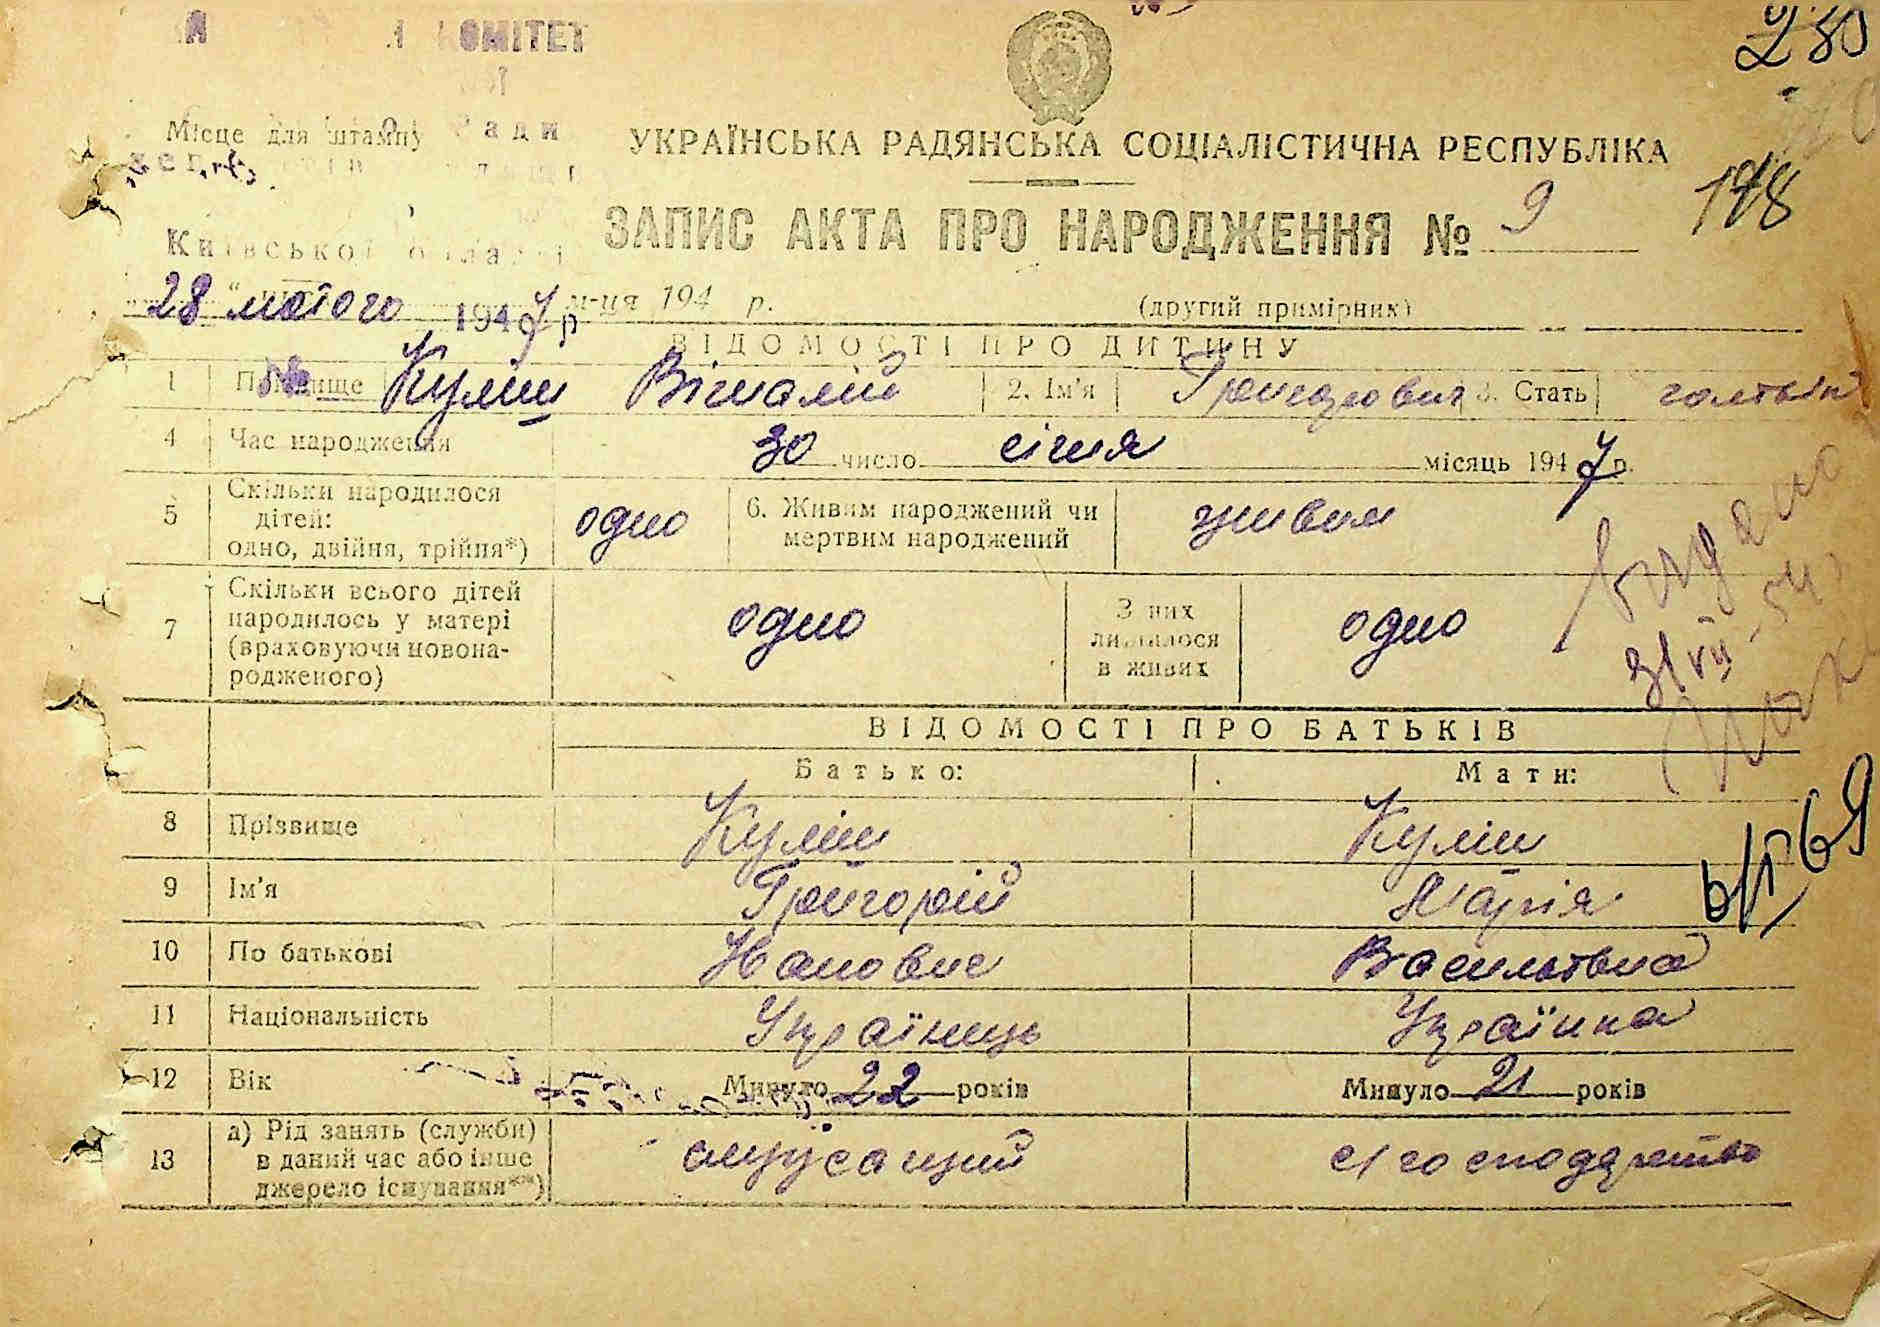 КОМІТЕТ
280
Місце для штампу Ради
УКРАЇНСЬКА РАДЯНСЬКА СОЦІАЛІСТИЧНА РЕСПУБЛІКА
178
ЗАПИС АКТА ПРО НАРОДЖЕННЯ № 9
Київської області
28 лютого 1947 р м-ця 194 р.
(другий примірник)
ВІДОМОСТІ ПРО ДИТИНУ
1 Прізвище Куліш Віталій 2. Ім'я Григорович 3. Стать
4 Час народження 30 число січня місяць 1947 р.
5 Скільки народилося дітей: одно, двійня, трійня*) одно 6. Живим народжений чи мертвим народжений живим
7 Скільки всього дітей народилось у матері (враховуючи новонародженого) одно З них лишилося в живих одно
видано
31 VII-54
ВІДОМОСТІ ПРО БАТЬКІВ
Батько: Мати:
8 Прізвище Куліш Куліш
9 Ім'я Григорій Марія
10 По батькові Васильовна
11 Національність Українець Українка
12 Вік Минуло 22 років Минуло 21 років
13 а) Рід занять (служби) в даний час або інше джерело існування**)